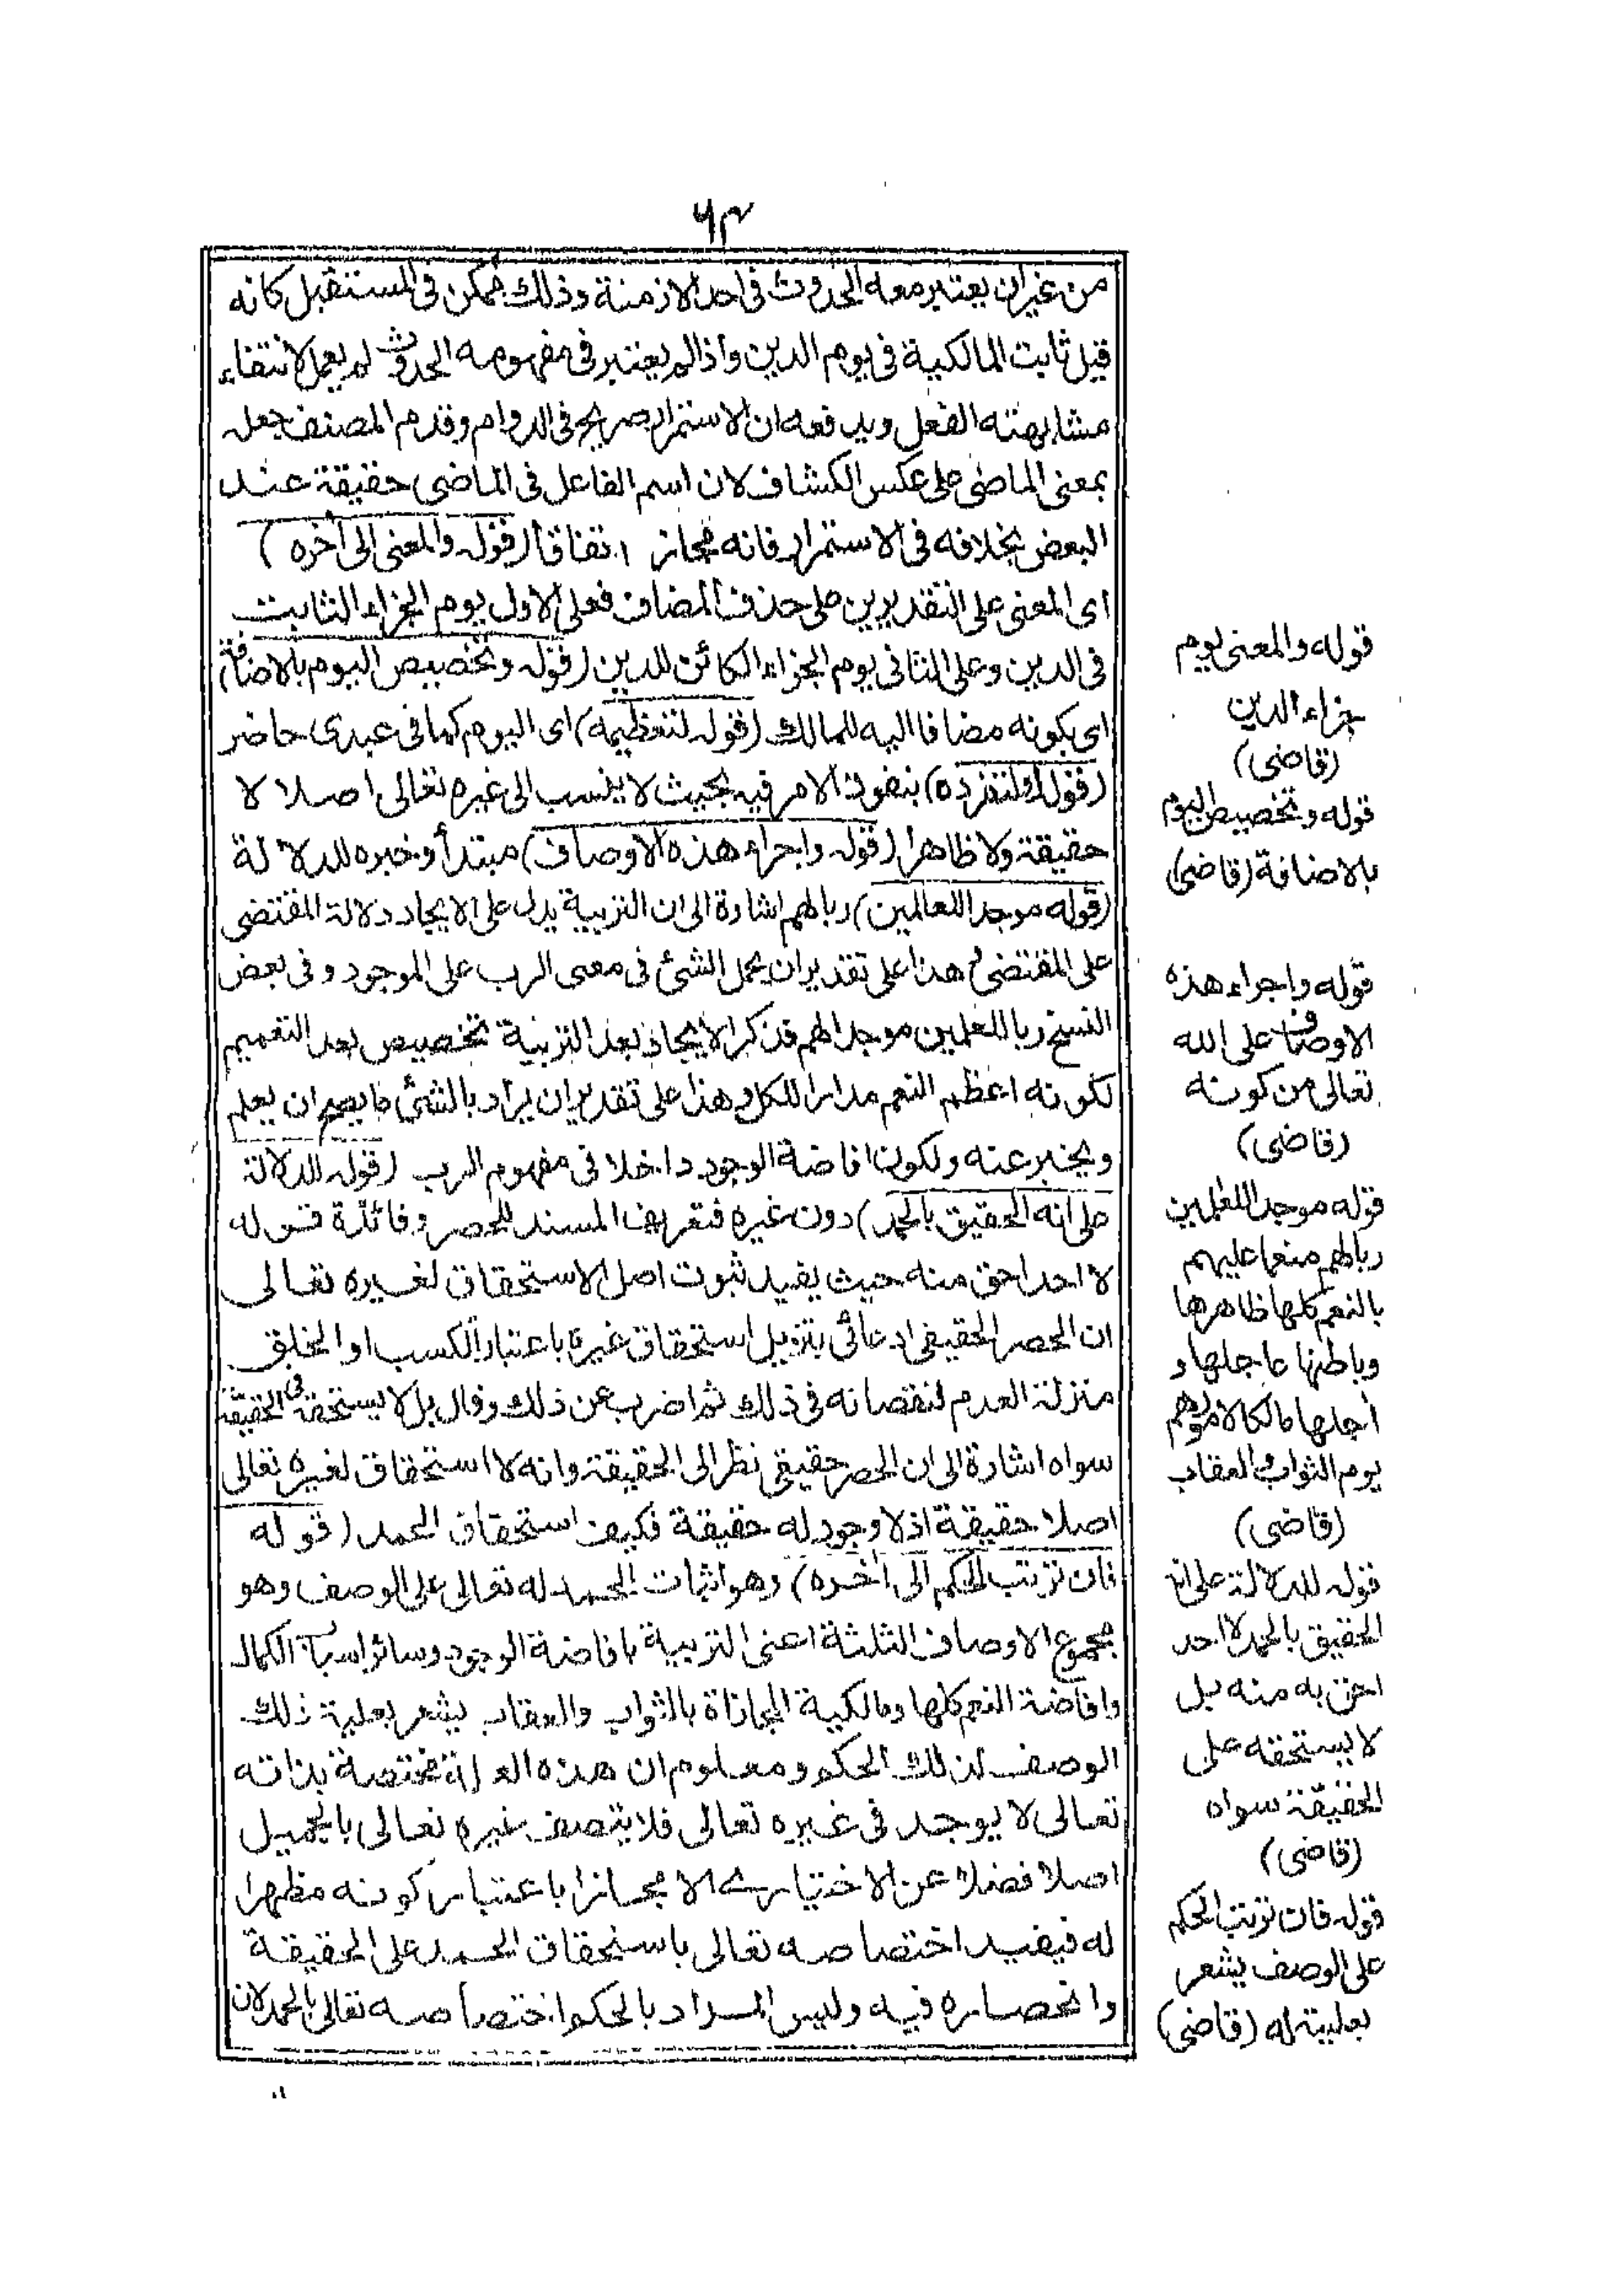 ٦٣
من غير ان يعتبر معه الحدوث فى احد الازمنة وذلك ممكن فى المستقبل كانه
قيل ثابت المالكية فى يوم الدين واذا لم يعتبر فى مفهومه الحدوث لم يعمل لانتفاء
مشابهته الفعل ويدفعه ان الاستمرار صريح فى الدوام وقدم المصنف جعله
بمعنى الماضى على عكس الكشاف لان اسم الفاعل فى الماضى حقيقة عند
البعض بخلافه فى الاستمرار فانه مجاز اتفاقا (قوله والمعنى الى أخره)
اى المعنى على التقديرين على حذف المضاف فعلى الاول يوم الجزاء الثابت
فى الدين وعلى الثانى يوم الجزاء الكائن للدين (قوله وتخصيص اليوم بالاضافة)
اى بكونه مضافا اليه للمالك (قوله لتعظيمه) اى اليوم كما فى عبدى حاضر
(قوله او لتفرده) بنفوذ الامر فيه بحيث لا ينسب الى غيره تعالى اصلا لا
حقيقة ولا ظاهرا (قوله واجراء هذه الاوصاف) مبتدأ وخبره للدلالة
(قوله موجد اللعالمين) ربالهم اشارة الى ان التربية يدل على الايجاد دلالة المقتضى
على المقتضى هذا على تقدير ان يحمل الشئ فى معنى الرب على الموجود وفى بعض
النسخ ربا للعلمين موجدا لهم فذكر الايجاد بعد التربية تخصيص بعد التعميم
لكونه اعظم النعم مدارا للكل وهذا على تقدير ان يراد بالشئ ما يصح ان يعلم
ويخبر عنه ولكون افاضة الوجود داخلا فى مفهوم الرب (قوله للدلالة
على انه الحقيق بالحمد) دون غيره فتعريف المسند للحصر وفائدة قوله
لا احد احق منه حيث يفيد ثبوت اصل الاستحقاق لغيره تعالى
ان الحصر الحقيقى ادعائى بتنزيل استحقاق غيره باعتبار الكسب او الخلق
منزلة العدم لنقصانه فى ذلك ثم اضرب عن ذلك وقال بل لا يستحقه فى الحقيقة
سواه اشارة الى ان الحصر حقيقى نظرا الى الحقيقة وانه لا استحقاق لغيره تعالى
اصلا حقيقة اذ لا وجود له حقيقة فكيف استحقاق الحمد (قوله
فان ترتب الحكم الى أخره) وهو اثبات الحمد له تعالى على الوصف وهو
مجموع الاوصاف الثلثة اعنى التربية بافاضة الوجود وسائر اسباب الكمال
وافاضة النعم كلها ومالكية المجازاة بالثواب والعقاب يشعر بعلية ذلك
الوصف لذلك الحكم ومعلوم ان هذه العلة مختصة بذاته
تعالى لا يوجد فى غيره تعالى فلا يتصف غيره تعالى بالجميل
اصلا فضلا عن الاختيارى الا مجازا باعتبار كونه مظهرا
له فيفيد اختصاصه تعالى باستحقاق الحمد على الحقيقة
وانحصاره فيه وليس المراد بالحكم اختصاصه تعالى بالحمد لان
قوله والمعنى يوم
جزاء الدين
(قاضى)
قوله وتخصيص اليوم
بالاضافة (قاضى)
قوله واجراء هذه
الاوصاف على الله
تعالى من كونه
(قاضى)
قوله موجد اللعلمين
ربالهم منعما عليهم
بالنعم كلها ظاهرها
وباطنها عاجلها و
أجلها مالكا لامورهم
يوم الثواب والعقاب
(قاضى)
قوله للدلالة على انه
الحقيق بالحمد لا احد
احق به منه بل
لا يستحقه على
الحقيقة سواه
(قاضى)
قوله فان ترتب الحكم
على الوصف يشعر
بعليته له (قاضى)